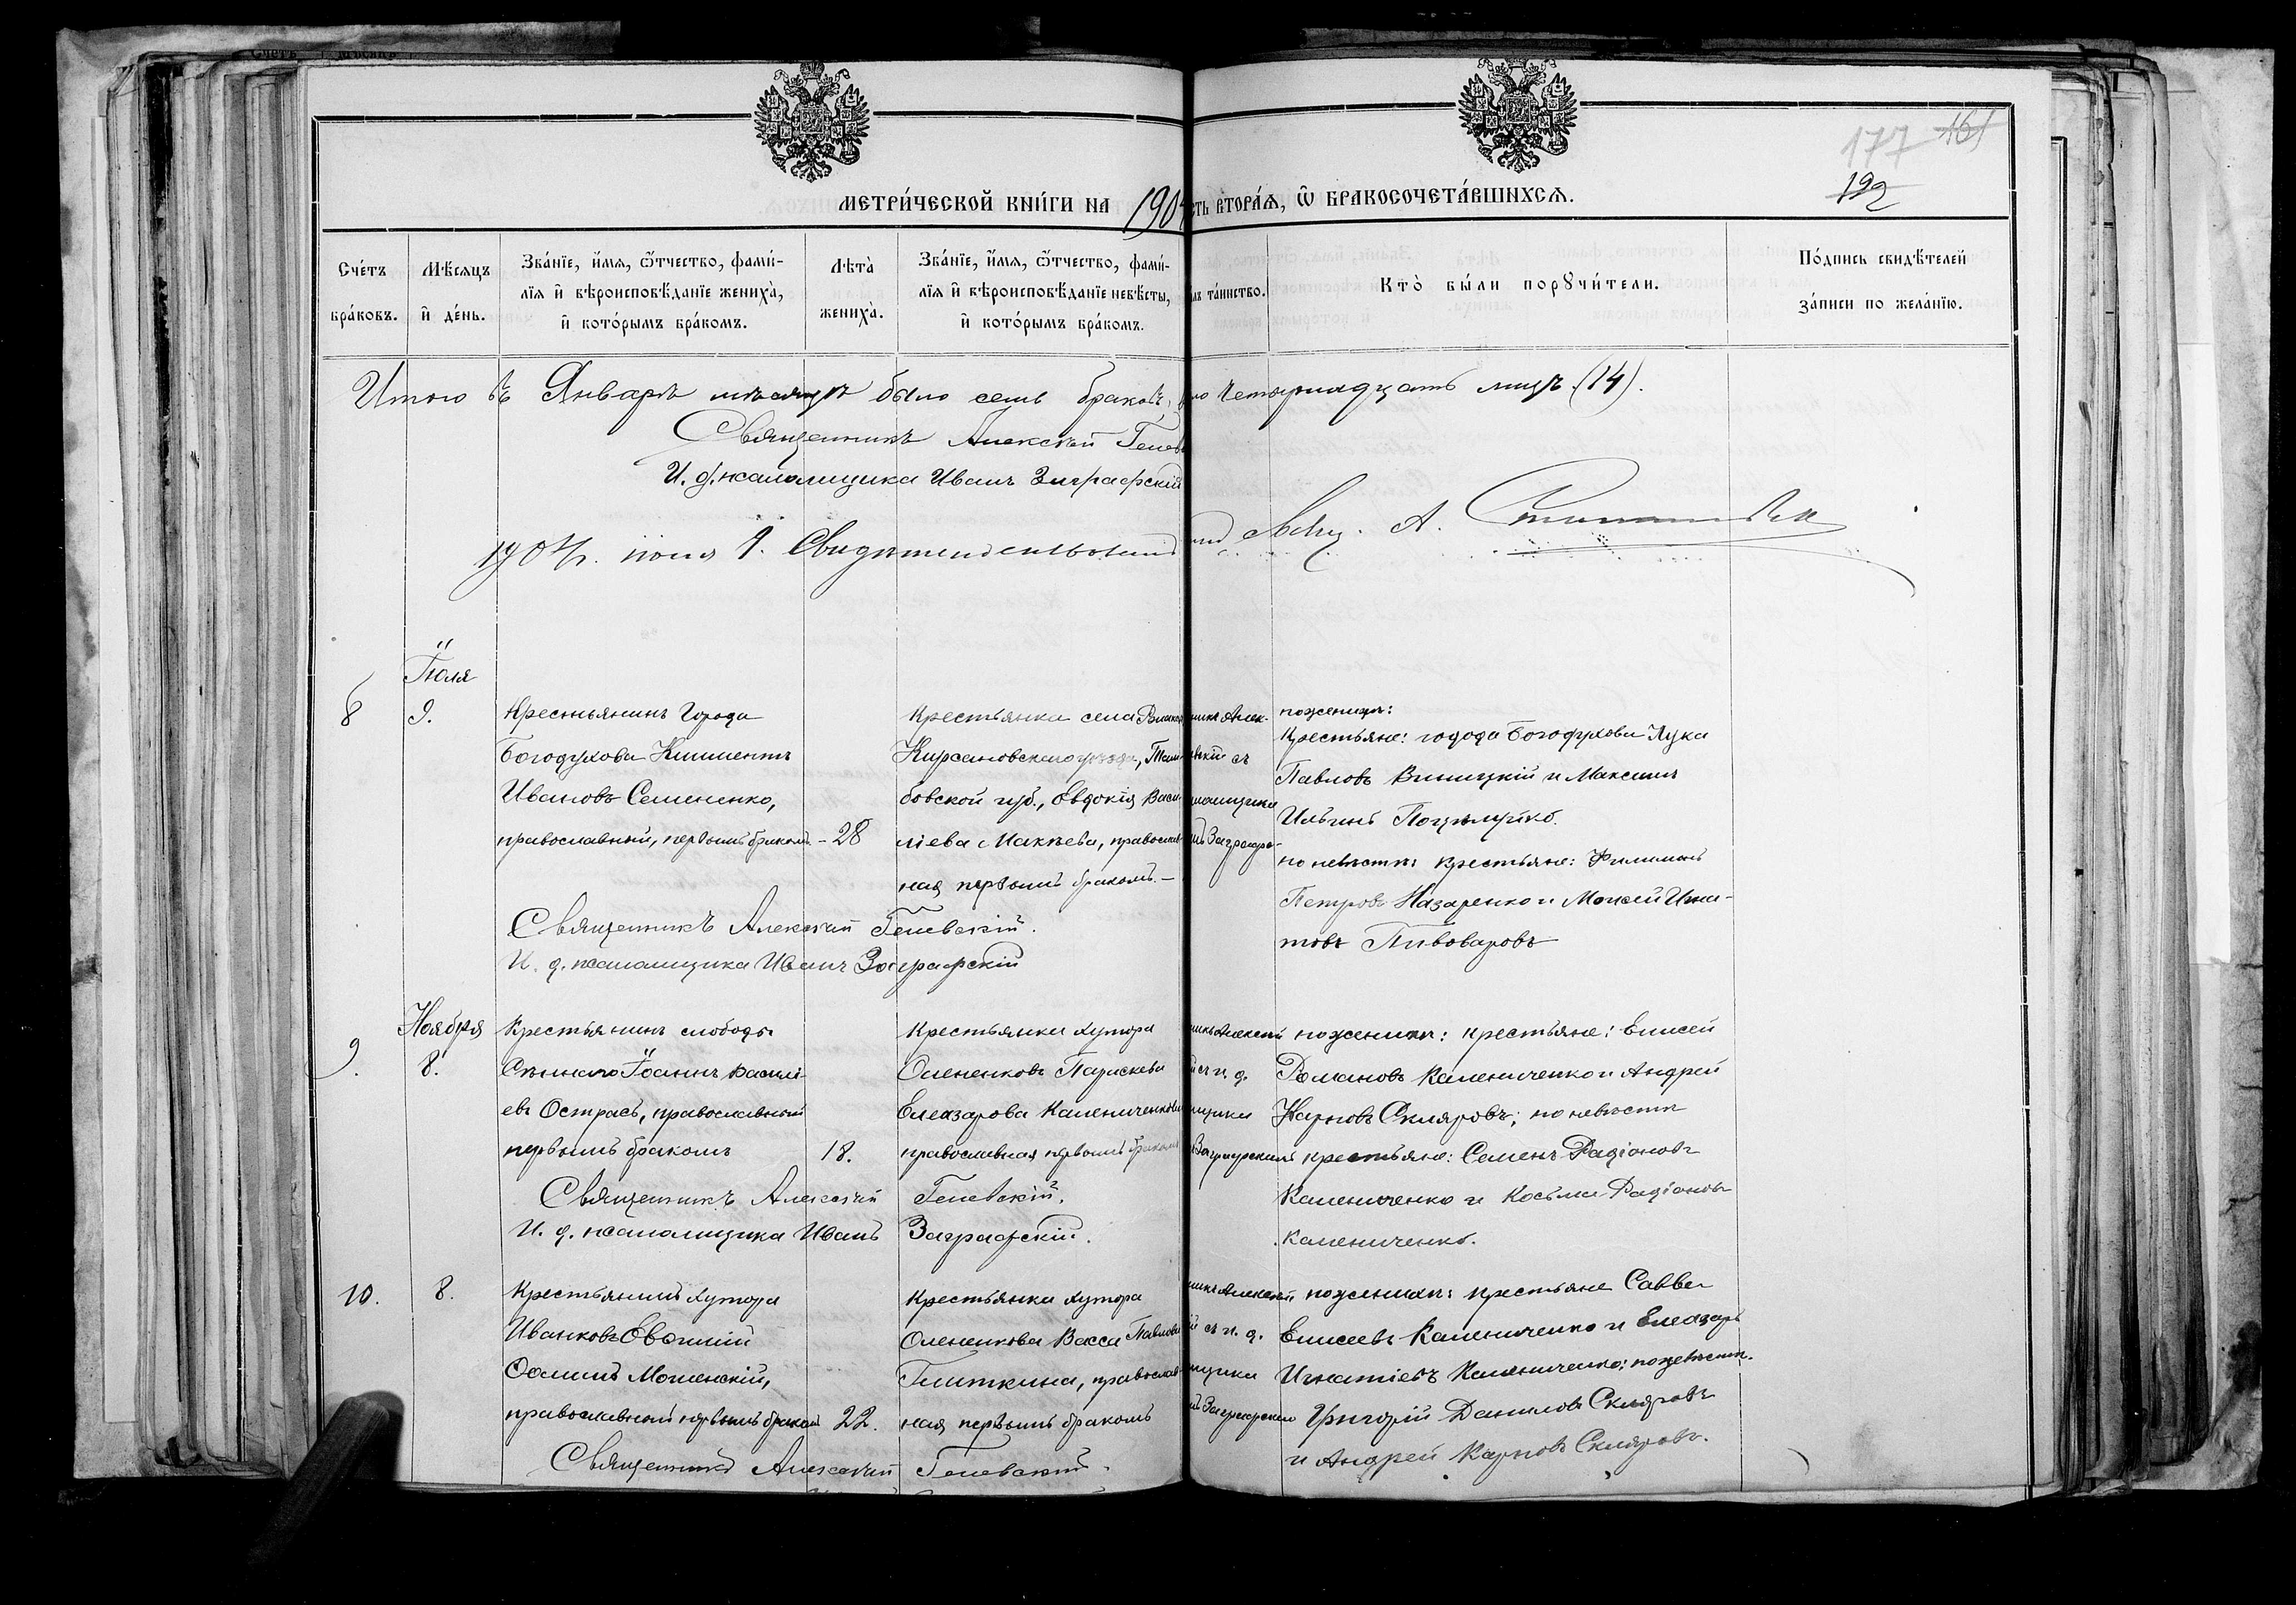 Счетъ
177 161
192
МЕТРИ́ЧЕСКОЙ КНИ́ГИ НА 1904
сть ВТОРА́Ѧ, Ѽ БРАКОСОЧЕТА́ВШИХСѦ.
Сче́тъ бра́ковъ.
Мѣ́сѧцъ и҆ де́нь.
Зва́нїе, и҆́мѧ, ѻ҆́тчество, фами́-
лїѧ и҆ вѣроисповѣ́данїе жениха̀,
и҆ кото́рымъ бра́комъ.
Лѣта̀ жениха̀.
Зва́нїе, и҆́мѧ, ѻ҆́тчество, фами́-
лїѧ и҆ вѣроисповѣ́данїе невѣ́сты,
и҆ кото́рымъ бра́комъ.
лъ та́инство.
Кто̀ бы́ли порꙋчи́тели.
По́дпись свидѣ́телей
за́писи по жела́нїю.
Итого въ Январѣ мѣсяцѣ было семь браковъ,
но четырнадцать лицъ. (14).
Священникъ Алексѣй
И. д. псаломщика Иванъ Заграфскій
1904 г. іюня 9.
Свящ. А.
Іюля
8 9.
Крестьянинъ города
Богодухова Климентъ
Ивановъ Семененко,
православный, первымъ бракомъ – 28
Крестьянка села
Кирсановскаго уѣзда, Там-
бовской губ., Евдокія Васи-
ліева Макѣева, православ-
ная первымъ бракомъ. –
никъ Алек-
вскій съ
ломщика
по женихѣ:
Крестьяне: города Богодухова Лука
Павловъ Виницкій и Максимъ
Ильинъ
по невѣстѣ: крестьяне: Филимонъ
Петровъ Назаренко и Моисей Игна-
товъ Пивоваровъ
Священникъ Алексѣй Гелевскій.
И. д. псаломщика Иванъ Заграфскій
Ноября
9. 8.
Крестьянинъ слободы
Сѣннаго Іоаннъ Василі-
евъ Острась, православный
первымъ бракомъ 18.
Крестьянка хутора
Олененковъ Параскева
Елеазарова Калениченкова
православная первымъ бракомъ
никъ Алексѣй
й съ и. д.
мщика
Заграфскимъ
по женихѣ: крестьяне: Елисей
Романовъ Калениченко и Андрей
Карповъ Скляровъ; по невѣстѣ
крестьяне: Семенъ Радіоновъ
Калениченко и Косьма Радіоновъ
Калениченко.
Священникъ Алексѣй Гелевскій.
И. д. псаломщика Иванъ Заграфскій.
10. 8.
Крестьянинъ хутора
Иванковъ Евфимій
Ѳоминъ Мошенскій,
православный первымъ бракомъ 22.
Крестьянка хутора
Оленникова Васса Павлова
Глиткина, православ-
ная первымъ бракомъ
никъ Алексѣй
й съ и. д.
мщика
по женихѣ: крестьяне Савва
Елисеевъ Калениченко и Елеазаръ
Игнатіевъ Калениченко; по невѣстѣ.
Григорій Даниловъ Скляровъ
и Андрей Карповъ Скляровъ.
Священникъ Алексѣй Гелевскій.